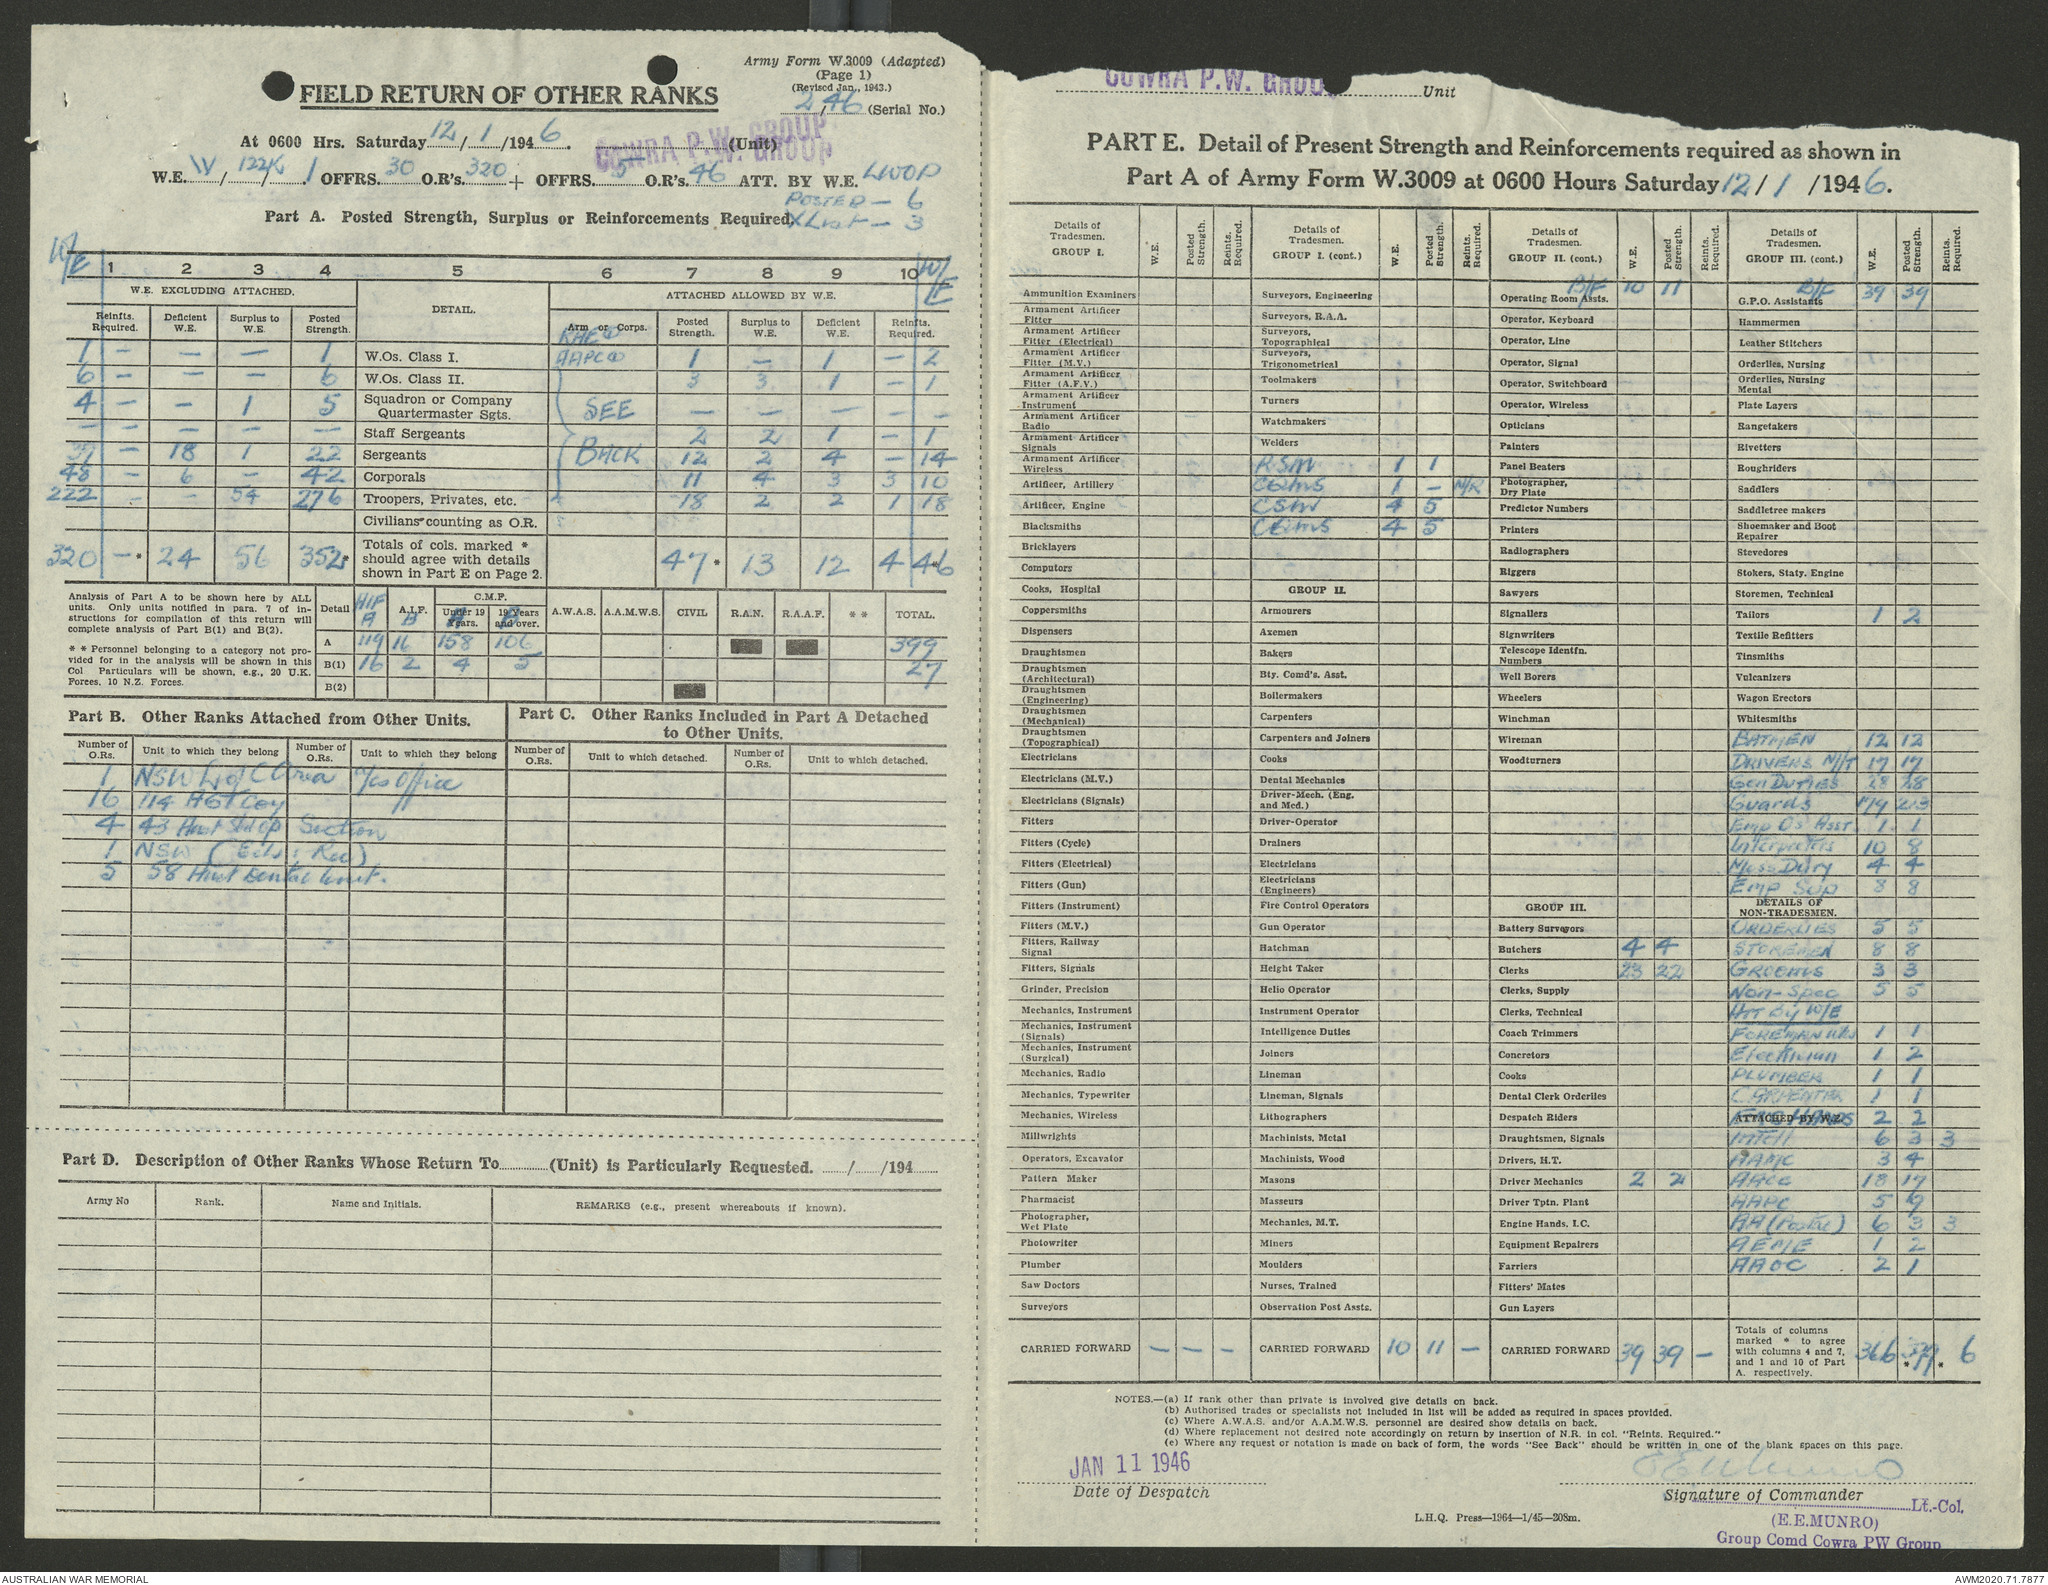 Army Form W.3009 (Adapted)
(Page 1)
(Revised Jan., 1943.)
2/46 (Serial No.)
FIELD RETURN OF OTHER RANKS
At 0600 Hrs. Saturday 12/1/1946. COWRA P.W. GROUP (Unit)
W.E. IV/122K/1 OFFRS. 30 O.R's. 320 + OFFRS. 5 O.R's. 46 ATT. BY W.E. LWOP
POSTED — 6
X List — 3
Part A. Posted Strength, Surplus or Reinforcements Required.
W/E 1 2 3 4 5 6 7 8 9 10 W/E
W.E. EXCLUDING ATTACHED. DETAIL. ATTACHED ALLOWED BY W.E.
Reinfts. Required. Deficient W.E. Surplus to W.E. Posted Strength. Arm or Corps. Posted Strength. Surplus to W.E. Deficient W.E. Reinfts. Required.
1 — — — 1 W.Os. Class I. AAPC 1 — 1 — 2
6 — — — 6 W.Os. Class II. 3 3 1 — 1
4 — — 1 5 Squadron or Company Quartermaster Sgts. SEE — — — — —
— — — — — Staff Sergeants 2 2 1 — 1
— 18 1 22 Sergeants BACK 12 2 4 — 14
48 — 6 — 42 Corporals 11 4 3 3 10
222 — — 54 276 Troopers, Privates, etc. 18 2 2 1 18
Civilians counting as O.R.
320 — * 24 56 352* Totals of cols. marked * should agree with details shown in Part E on Page 2. 47 * 13 12 4 * 46
Analysis of Part A to be shown here by ALL units. Only units notified in para. 7 of instructions for compilation of this return will complete analysis of Part B(1) and B(2).
* * Personnel belonging to a category not provided for in the analysis will be shown in this Col Particulars will be shown, e.g., 20 U.K. Forces, 10 N.Z. Forces.
Detail AIF A A.I.F. B C.M.F. Under 19 Years. 19 Years and over. A.W.A.S. A.A.M.W.S. CIVIL R.A.N. R.A.A.F. * * TOTAL.
A 119 16 158 106 399
B(1) 16 2 4 5 27
B(2)
Part B. Other Ranks Attached from Other Units.
Number of O.Rs. Unit to which they belong Number of O.Rs. Unit to which they belong
1 NSW L of C Area Office
16 114 AGT Coy
4 43 Section
1 NSW
5 58 Aust Dental Unit.
Part C. Other Ranks Included in Part A Detached to Other Units.
Number of O.Rs. Unit to which detached. Number of O.Rs. Unit to which detached.
Part D. Description of Other Ranks Whose Return To ............ (Unit) is Particularly Requested. ....../....../194......
Army No Rank. Name and Initials. REMARKS (e.g., present whereabouts if known).
COWRA P.W. GROUP Unit
PART E. Detail of Present Strength and Reinforcements required as shown in
Part A of Army Form W.3009 at 0600 Hours Saturday 12/1/1946.
Details of Tradesmen. GROUP I. W.E. Posted Strength. Reints. Required.
Ammunition Examiners
Armament Artificer Fitter
Armament Artificer Fitter (Electrical)
Armament Artificer Fitter (M.V.)
Armament Artificer Fitter (A.F.V.)
Armament Artificer Instrument
Armament Artificer Radio
Armament Artificer Signals
Armament Artificer Wireless
Artificer, Artillery
Artificer, Engine
Blacksmiths
Bricklayers
Computors
Cooks, Hospital
Coppersmiths
Dispensers
Draughtsmen
Draughtsmen (Architectural)
Draughtsmen (Engineering)
Draughtsmen (Mechanical)
Draughtsmen (Topographical)
Electricians
Electricians (M.V.)
Electricians (Signals)
Fitters
Fitters (Cycle)
Fitters (Electrical)
Fitters (Gun)
Fitters (Instrument)
Fitters (M.V.)
Fitters, Railway Signal
Fitters, Signals
Grinder, Precision
Mechanics, Instrument
Mechanics, Instrument (Signals)
Mechanics, Instrument (Surgical)
Mechanics, Radio
Mechanics, Typewriter
Mechanics, Wireless
Millwrights
Operators, Excavator
Pattern Maker
Pharmacist
Photographer, Wet Plate
Photowriter
Plumber
Saw Doctors
Surveyors
CARRIED FORWARD — — —
Details of Tradesmen. GROUP I. (cont.) W.E. Posted Strength. Reints. Required.
Surveyors, Engineering
Surveyors, R.A.A.
Surveyors, Topographical
Surveyors, Trigonometrical
Toolmakers
Turners
Watchmakers
Welders
RSM 1 1
CQMS 1 — N/R
CSM 4 5
CQMS 4 5
GROUP II.
Armourers
Axemen
Bakers
Bty. Comd's. Asst.
Boilermakers
Carpenters
Carpenters and Joiners
Cooks
Dental Mechanics
Driver-Mech. (Eng. and Med.)
Driver-Operator
Drainers
Electricians
Electricians (Engineers)
Fire Control Operators
Gun Operator
Hatchman
Height Taker
Helio Operator
Instrument Operator
Intelligence Duties
Joiners
Lineman
Lineman, Signals
Lithographers
Machinists, Metal
Machinists, Wood
Masons
Masseurs
Mechanics, M.T.
Miners
Moulders
Nurses, Trained
Observation Post Assts.
CARRIED FORWARD 10 11 —
Details of Tradesmen. GROUP II. (cont.) W.E. Posted Strength. Reints. Required.
B/F 10 11
Operating Room Assts.
Operator, Keyboard
Operator, Line
Operator, Signal
Operator, Switchboard
Operator, Wireless
Opticians
Painters
Panel Beaters
Photographer, Dry Plate
Predictor Numbers
Printers
Radiographers
Riggers
Sawyers
Signallers
Signwriters
Telescope Identfn. Numbers
Well Borers
Wheelers
Winchman
Wireman
Woodturners
GROUP III.
Battery Surveyors
Butchers 4 4
Clerks 23 22
Clerks, Supply
Clerks, Technical
Coach Trimmers
Concretors
Cooks
Dental Clerk Orderlies
Despatch Riders
Draughtsmen, Signals
Drivers, H.T.
Driver Mechanics 2 2
Driver Tptn. Plant
Engine Hands, I.C.
Equipment Repairers
Farriers
Fitters' Mates
Gun Layers
CARRIED FORWARD 39 39 —
Details of Tradesmen. GROUP III. (cont.) W.E. Posted Strength. Reints. Required.
B/F 39 39
G.P.O. Assistants
Hammermen
Leather Stitchers
Orderlies, Nursing
Orderlies, Nursing Mental
Plate Layers
Rangetakers
Rivetters
Roughriders
Saddlers
Saddletree makers
Shoemaker and Boot Repairer
Stevedores
Stokers, Staty. Engine
Storemen, Technical
Tailors 1 2
Textile Refitters
Tinsmiths
Vulcanizers
Wagon Erectors
Whitesmiths
BATMEN 12 12
DRIVERS M/T 17 17
Gen DUTIES 28 28
Guards 179 213
Emp Os Asst. 1 1
Interpreters 10 8
Mess Duty 4 4
Emp Sup 8 8
DETAILS OF NON-TRADESMEN.
ORDERLIES 5 5
STOREMEN 8 8
GROOMS 3 3
Non-Spec 5 5
ATT By W/E
FOREMAN 1 1
Electrician 1 2
PLUMBER 1 1
CARPENTER 1 1
ATTACHED BY W.E. 2 2
Intell 6 3 3
AAMC 3 4
AACC 18 17
AAPC 5 9
AA (Postal) 6 3 3
AEME 1 2
AAOC 2 1
Totals of columns marked * to agree with columns 4 and 7, and 1 and 10 of Part A. respectively. 366 * 399 * 6
NOTES.—(a) If rank other than private is involved give details on back.
(b) Authorised trades or specialists not included in list will be added as required in spaces provided.
(c) Where A.W.A.S. and/or A.A.M.W.S. personnel are desired show details on back.
(d) Where replacement not desired note accordingly on return by insertion of N.R. in col. "Reints. Required."
(e) Where any request or notation is made on back of form, the words "See Back" should be written in one of the blank spaces on this page.
JAN 11 1946
Date of Despatch
Signature of Commander
Lt.-Col.
(E.E.MUNRO)
Group Comd Cowra PW Group
L.H.Q. Press—1964—1/45—208m.
AUSTRALIAN WAR MEMORIAL
AWM2020.71.7877